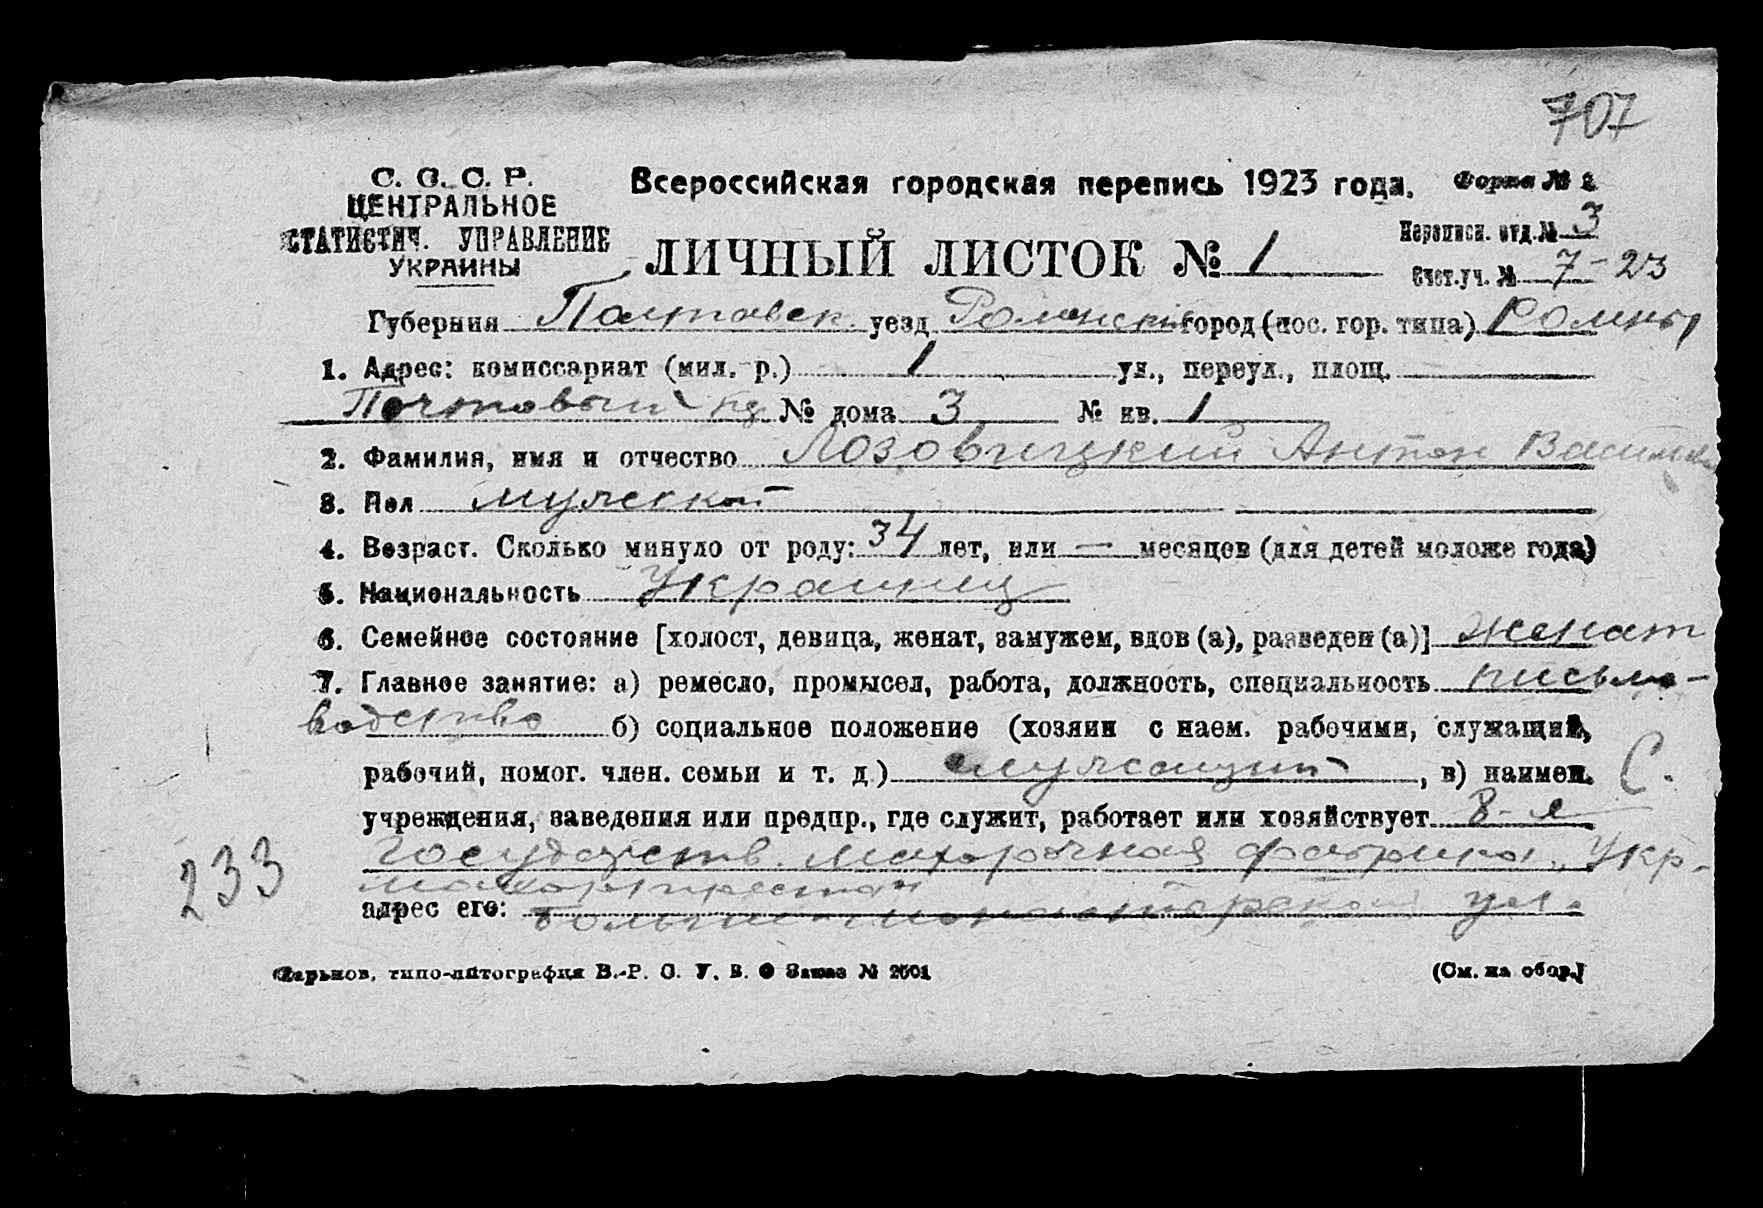 707
С. С. С. Р.
ЦЕНТРАЛЬНОЕ
СТАТИСТИЧ. УПРАВЛЕНИЕ
УКРАИНЫ
Всероссийская городская перепись 1923 года.
Форма № 2
ЛИЧНЫЙ ЛИСТОК № 1
Переписн. отд. № 3
Счет. уч. № 7-23
Губерния Полтавск. уезд Роменский город (пос. гор. типа) Ромны
1. Адрес: комиссариат (мил. р.) 1 ул., переул., площ.
Почтовый № дома 3 № кв. 1
2. Фамилия, имя и отчество Лозовицкий Антон
3. Пол мужской
4. Возраст. Сколько минуло от роду: 34 лет, или — месяцев (для детей моложе года)
5. Национальность Украинец
6. Семейное состояние [холост, девица, женат, замужем, вдов (а), разведен (а)] женат
7. Главное занятие: а) ремесло, промысел, работа, должность, специальность письмо-
водство б) социальное положение (хозяин с наем. рабочими, служащий,
рабочий, помог. член. семьи и т. д.) служащий, в) наимен. С.
учреждения, заведения или предпр., где служит, работает или хозяйствует 8-я
Государств. махорочная фабрика „Укр-
махортреста"
адрес его: ул.
233
Харьков, типо-литография В.-Р. С. У. В. О Заказ № 2601
(См. на обор.)